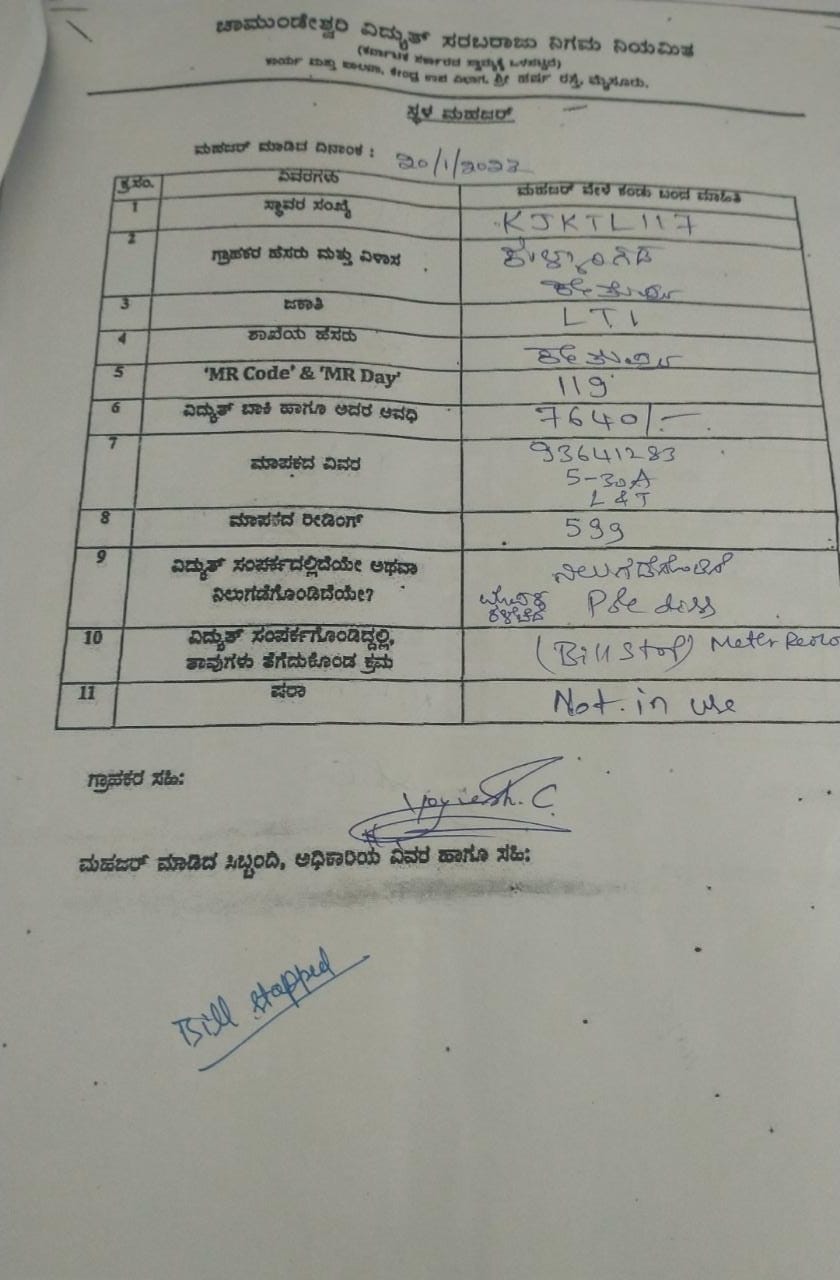 ಚಾಮುಂಡೇಶ್ವರಿ ವಿದ್ಯುತ್ ಸರಬರಾಜು ನಿಗಮ ನಿಯಮಿತ
(ಕರ್ನಾಟಕ ಸರ್ಕಾರದ ಸ್ವಾಮ್ಯಕ್ಕೆ ಒಳಪಟ್ಟಿದೆ)
ಕಾರ್ಯ ಮತ್ತು ಪಾಲನಾ, ಕೇಂದ್ರ ಉಪ ವಿಭಾಗ, ಶ್ರೀ ಹರ್ಷ ರಸ್ತೆ, ಮೈಸೂರು.
ಸ್ಥಳ ಮಹಜರ್
ಮಹಜರ್ ಮಾಡಿದ ದಿನಾಂಕ : 20/1/2023
ಕ್ರ.ಸಂ. ವಿವರಗಳು ಮಹಜರ್ ವೇಳೆ ಕಂಡು ಬಂದ ಮಾಹಿತಿ
1 ಸ್ಥಾವರ ಸಂಖ್ಯೆ KJKTL117
2 ಗ್ರಾಹಕರ ಹೆಸರು ಮತ್ತು ವಿಳಾಸ
3 ಜಕಾತಿ LT1
4 ಶಾಖೆಯ ಹೆಸರು
5 'MR Code' & 'MR Day' 119
6 ವಿದ್ಯುತ್ ಬಾಕಿ ಹಾಗೂ ಅದರ ಅವಧಿ 7640/-
7 ಮಾಪಕದ ವಿವರ 93641283
5-30A
L&T
8 ಮಾಪಕದ ರೀಡಿಂಗ್ 599
9 ವಿದ್ಯುತ್ ಸಂಪರ್ಕದಲ್ಲಿದೆಯೇ ಅಥವಾ
ನಿಲುಗಡೆಗೊಂಡಿದೆಯೇ?
10 ವಿದ್ಯುತ್ ಸಂಪರ್ಕಗೊಂಡಿದ್ದಲ್ಲಿ, (Bill Stop) Meter
ತಾವುಗಳು ತೆಗೆದುಕೊಂಡ ಕ್ರಮ
11 ಷರಾ Not in use
ಗ್ರಾಹಕರ ಸಹಿ:
ಮಹಜರ್ ಮಾಡಿದ ಸಿಬ್ಬಂದಿ, ಅಧಿಕಾರಿಯ ವಿವರ ಹಾಗೂ ಸಹಿ:
Bill stopped